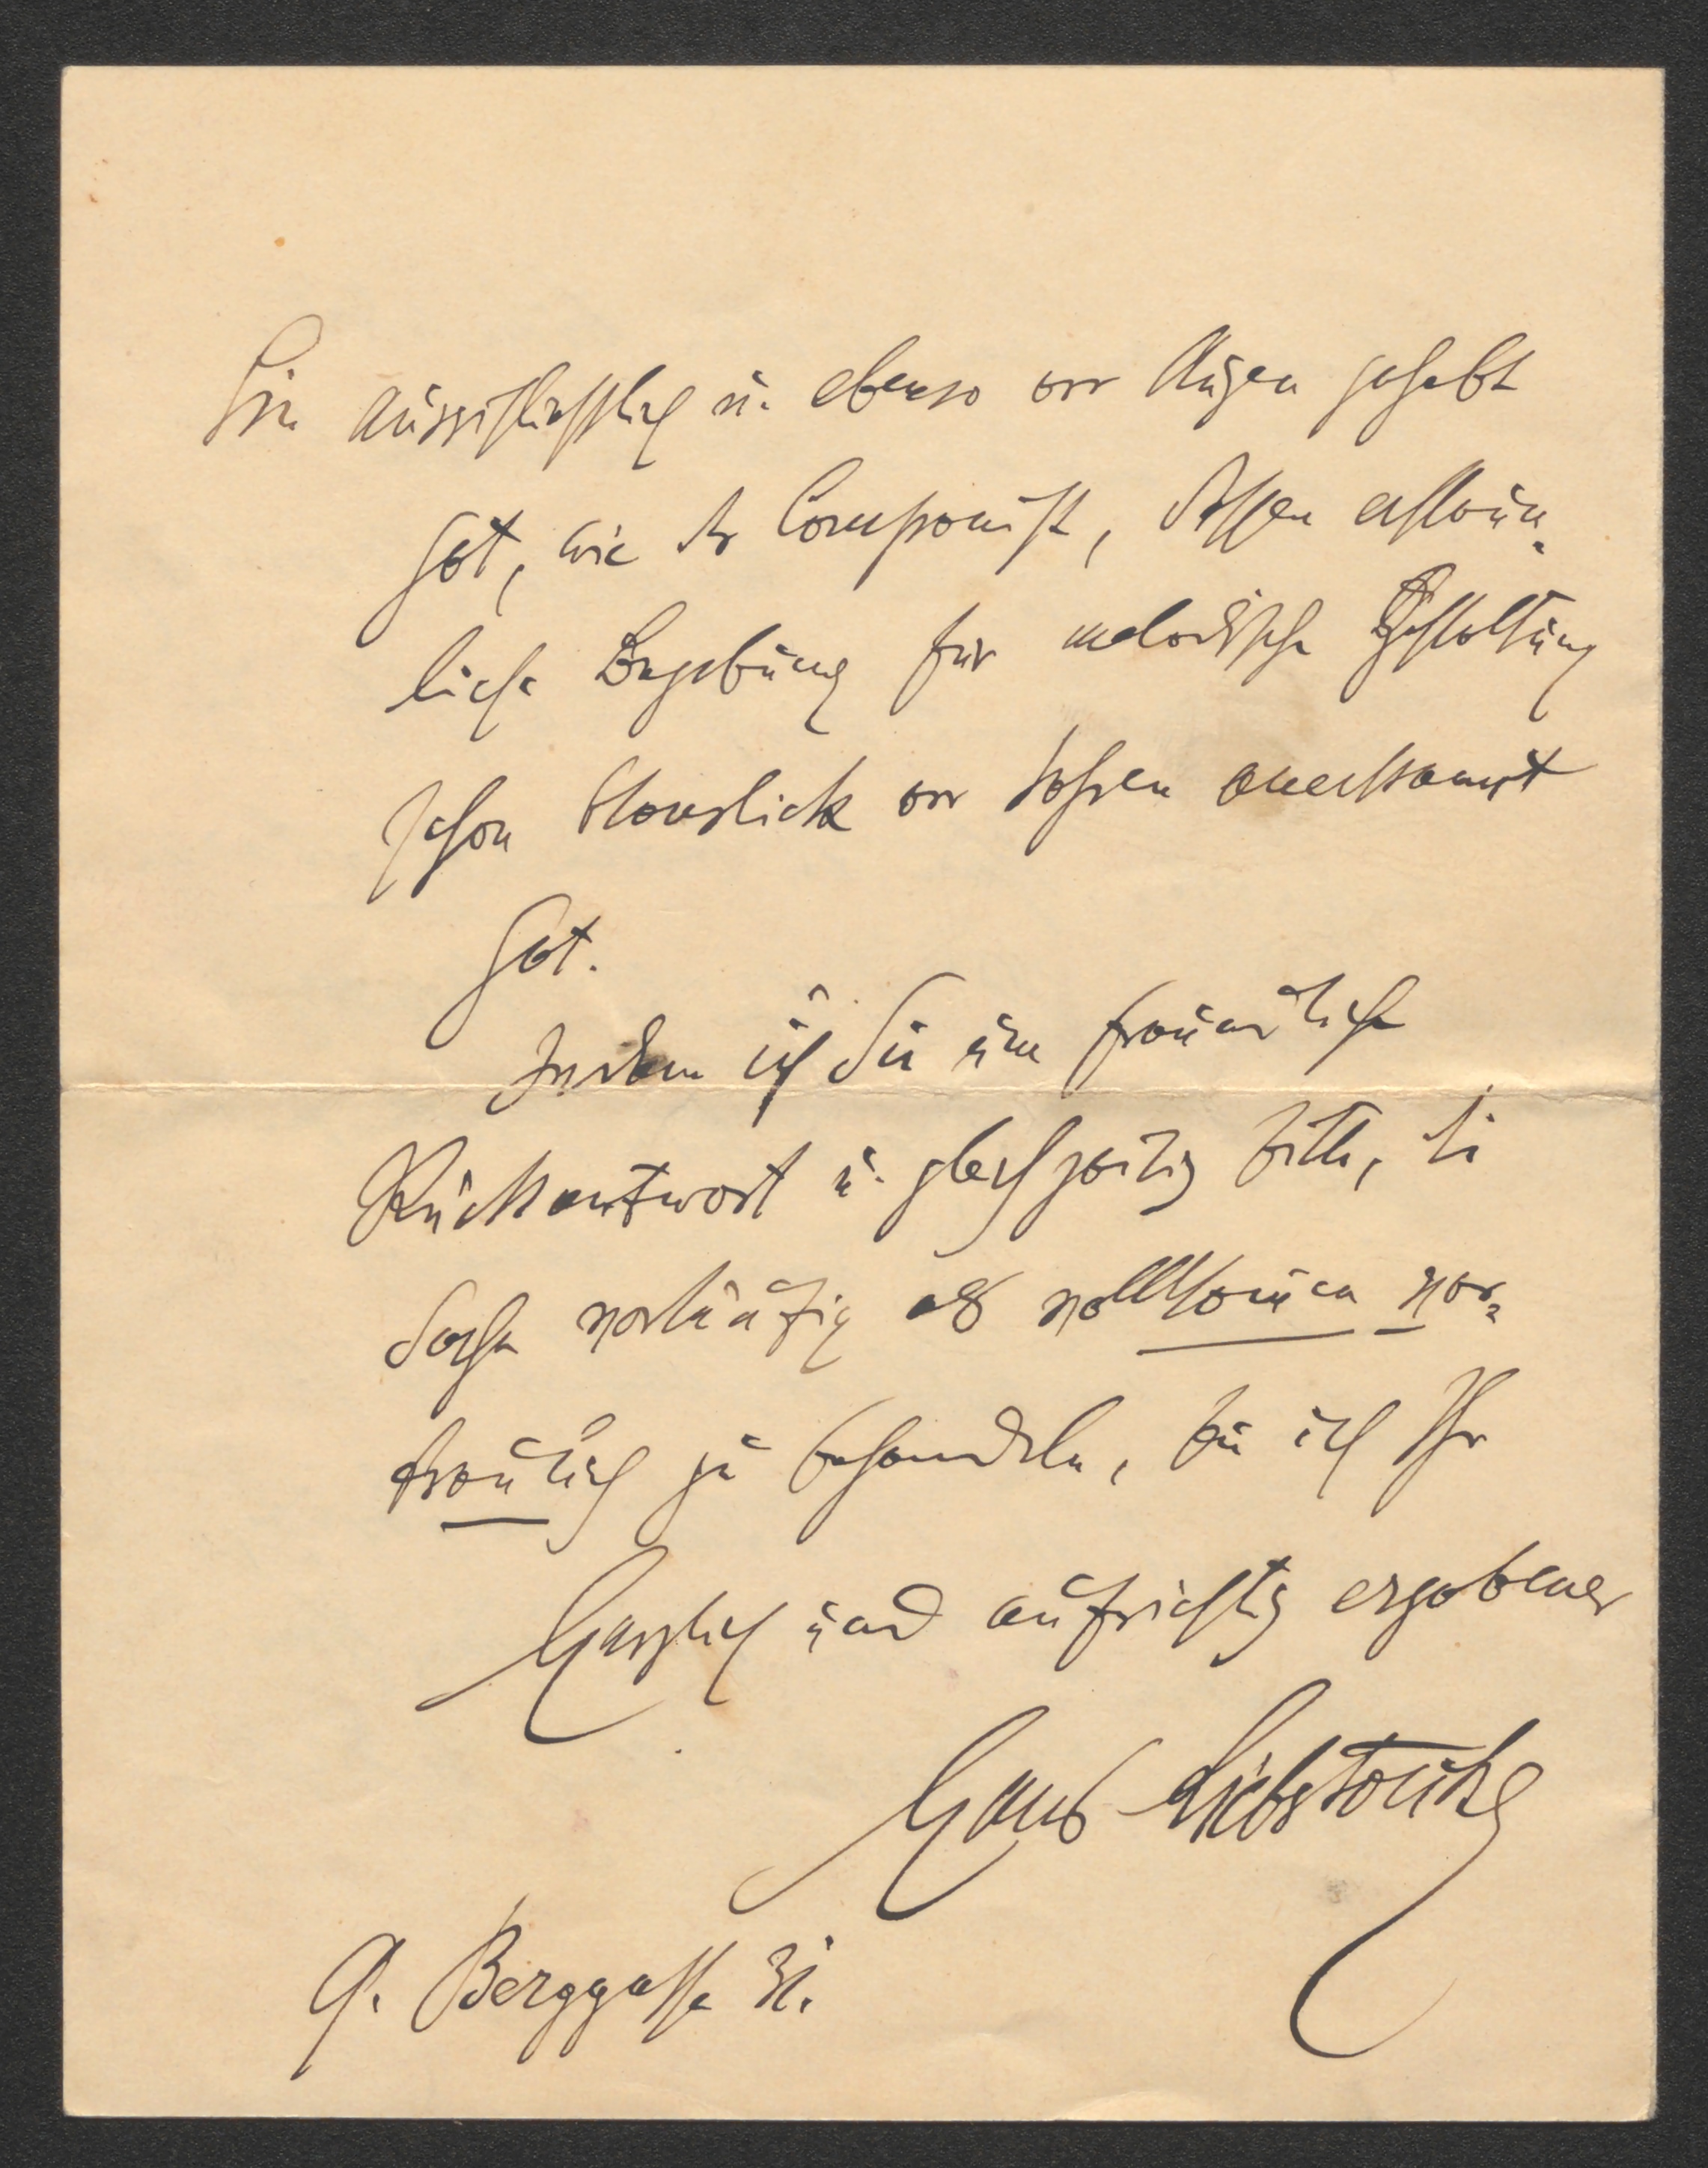 Sie ausschliesslich u. ebenso vor Augen gehabt
hat, wie der Componist, dessen erstaun-
liche Begabung für melodische Gestaltung
schon Hanslick vor Jahren anerkannt
hat.
Indem ich Sie um freundliche
Rückantwort u. gleichzeitig bitte, die
Sache vorläufig als vollkommen ver-
traulich zu behandeln, bin ich Ihr
Herzlich und aufrichtig ergebener
Hans Liebstöckl
9. Berggasse 31.